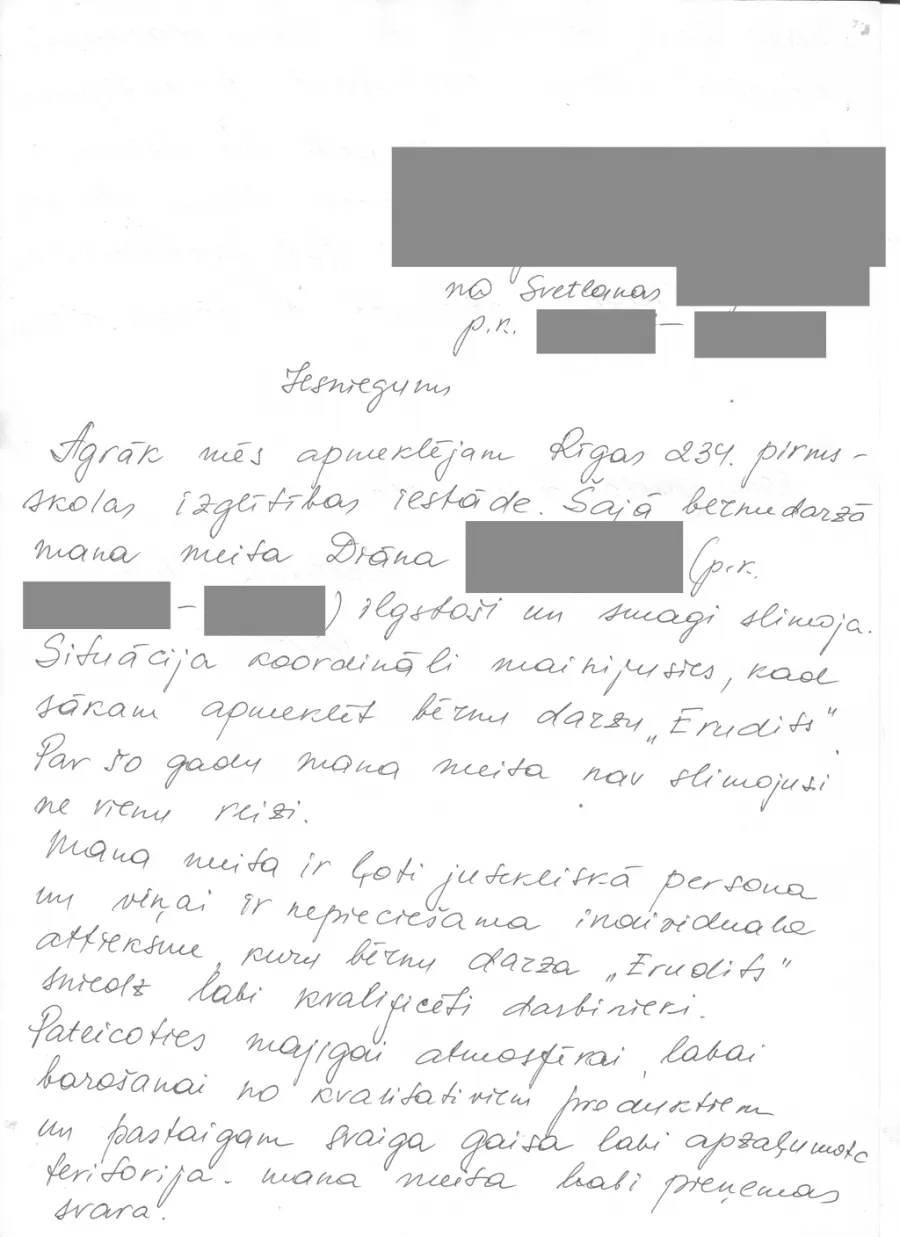 no Svetlanas
p.k. –
Iesniegums
Agrāk mēs apmeklējam Rīgas 234. pirms-
skolas izglītības iestāde. Šajā bērnudarzā
mana meita Diāna (p.k.
– ) ilgstoši un smagi slimoja.
Situācija koordināli mainijusies, kad
sākam apmeklēt bērnu darzu „Erudits"
Par šo gadu mana meita nav slimojusi
ne vienu reizi.
Mana meita ir ļoti jutekliskā persona
un viņai ir nepieciešama individuala
attieksme, kuru bērnu darza „Erudits"
sniedz labi kvalificēti darbinieki.
Pateicoties majigai atmosfērai, labai
barošanai no kvalitativiem produktiem
un pastaigam svaiga gaisa labi apzaļumota
teritorija - mana meita labi pieņemas
svara.